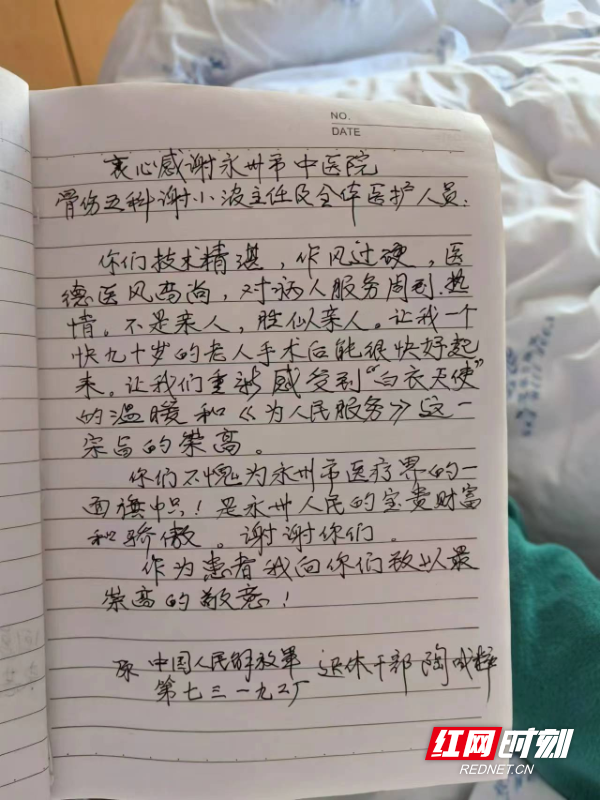 NO.
DATE
衷心感谢永州市中医院
骨伤五科谢小波主任及全体医护人员:
你们技术精湛，作风过硬，医
德医风高尚，对病人服务周到、热
情。不是亲人，胜似亲人。让我一个
快九十岁的老人手术后能很快好起
来。让我们重新感受到“白衣天使”
的温暖和《为人民服务》这一
宗旨的崇高。
你们不愧为永州市医疗界的一
面旗帜！是永州人民的宝贵财富
和骄傲。谢谢你们。
作为患者我向你们致以最
崇高的敬意！
原 中国人民解放军 退休干部 陶
第七三一九工厂
红网时刻
REDNET.CN